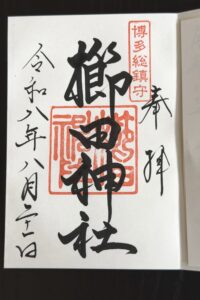 奉拝
博多総鎮守
櫛田神社
令和八年八月二十一日